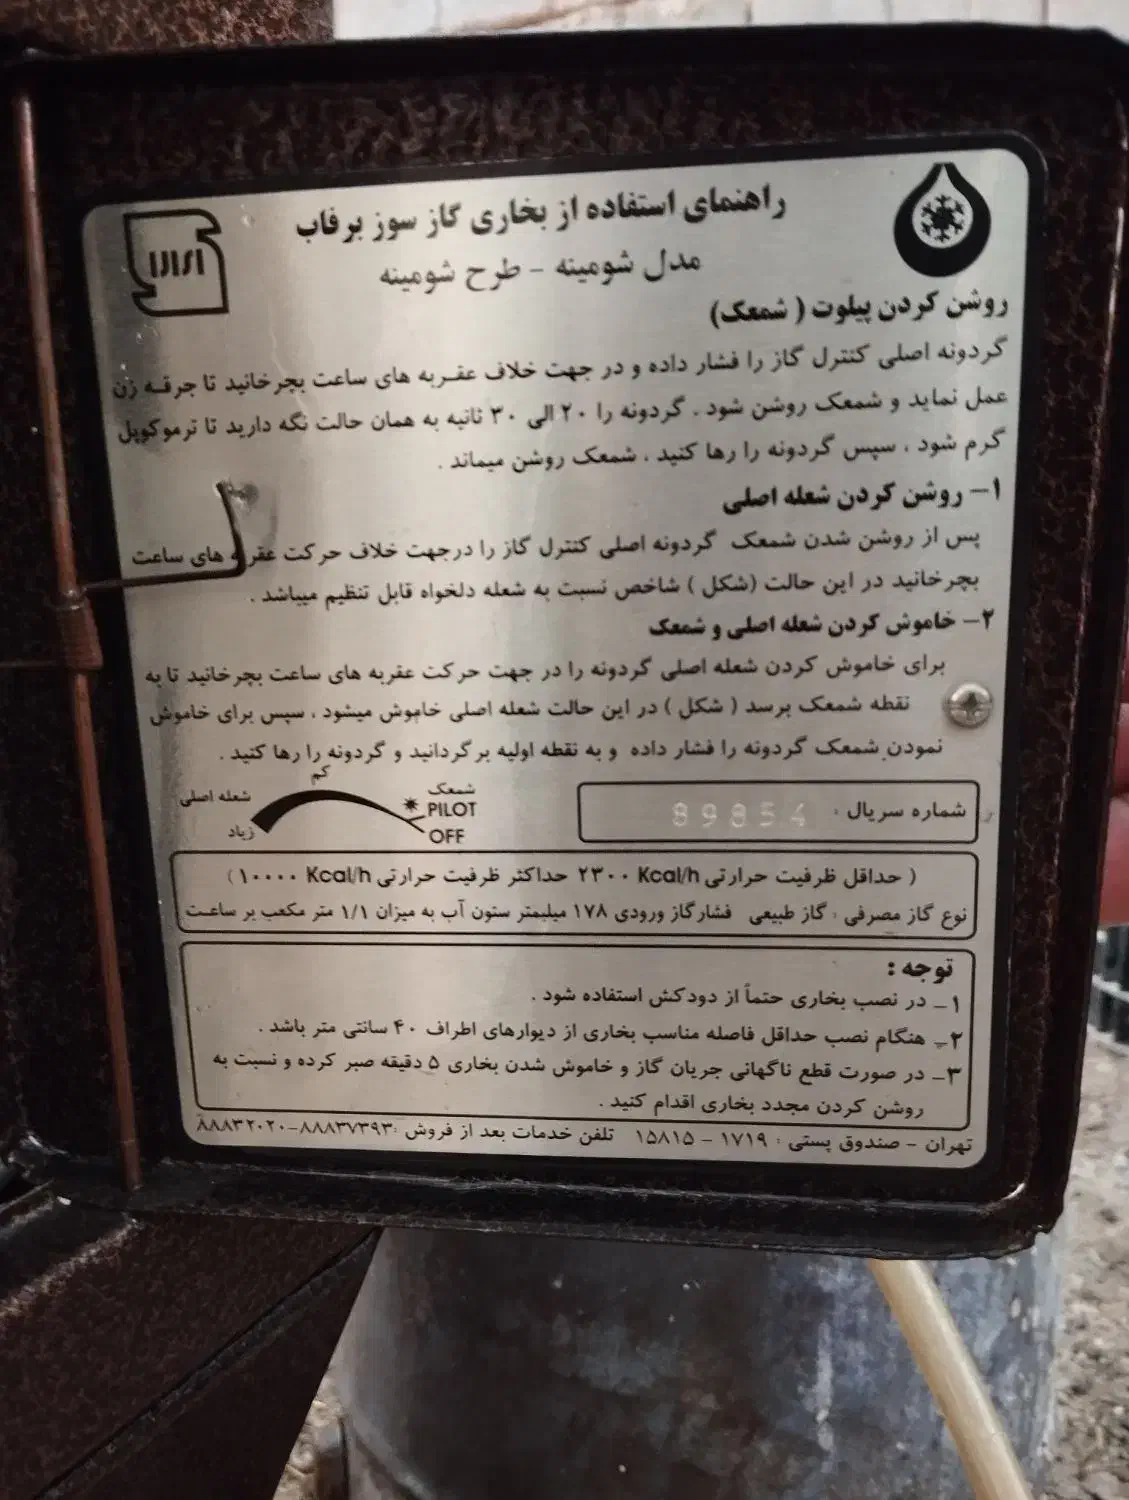 راهنمای استفاده از بخاری گاز سوز برفاب
مدل شومینه - طرح شومینه
روشن کردن پیلوت ( شمعک)
گردونه اصلی کنترل گاز را فشار داده و در جهت خلاف عقـربه های ساعت بچرخانید تا جرقـه زن
عمل نماید و شمعک روشن شود . گردونه را ۲۰ الی ۳۰ ثانیه به همان حالت نگه دارید تا ترموکوپل
گرم شود ، سپس گردونه را رها کنید ، شمعک روشن میماند .
۱- روشن کردن شعله اصلی
پس از روشن شدن شمعک گردونه اصلی کنترل گاز را درجهت خلاف حرکت عقربه های ساعت
بچرخانید در این حالت (شکل ) شاخص نسبت به شعله دلخواه قابل تنظیم میباشد .
۲- خاموش کردن شعله اصلی و شمعک
برای خاموش کردن شعله اصلی گردونه را در جهت حرکت عقربه های ساعت بچرخانید تا به
نقطه شمعک برسد ( شکل ) در این حالت شعله اصلی خاموش میشود ، سپس برای خاموش
نمودن شمعک گردونه را فشار داده و به نقطه اولیه برگردانید و گردونه را رها کنید .
کم
شمعک
شعله اصلی
PILOT
زیاد
OFF
شماره سریال : 89854
( حداقل ظرفیت حرارتی ۲۳۰۰ Kcal/h حداکثر ظرفیت حرارتی ۱۰۰۰۰ Kcal/h )
نوع گاز مصرفی : گاز طبیعی فشارگاز ورودی ۱۷۸ میلیمتر ستون آب به میزان ۱/۱ متر مکعب بر ساعت
توجه :
۱- در نصب بخاری حتماً از دودکش استفاده شود .
۲- هنگام نصب حداقل فاصله مناسب بخاری از دیوارهای اطراف ۴۰ سانتی متر باشد .
۳- در صورت قطع ناگهانی جریان گاز و خاموش شدن بخاری ۵ دقیقه صبر کرده و نسبت به
روشن کردن مجدد بخاری اقدام کنید .
تهران - صندوق پستی : ۱۷۱۹ - ۱۵۸۱۵ تلفن خدمات بعد از فروش :۸۸۸۳۷۳۹۳-۸۸۸۳۲۰۲۰